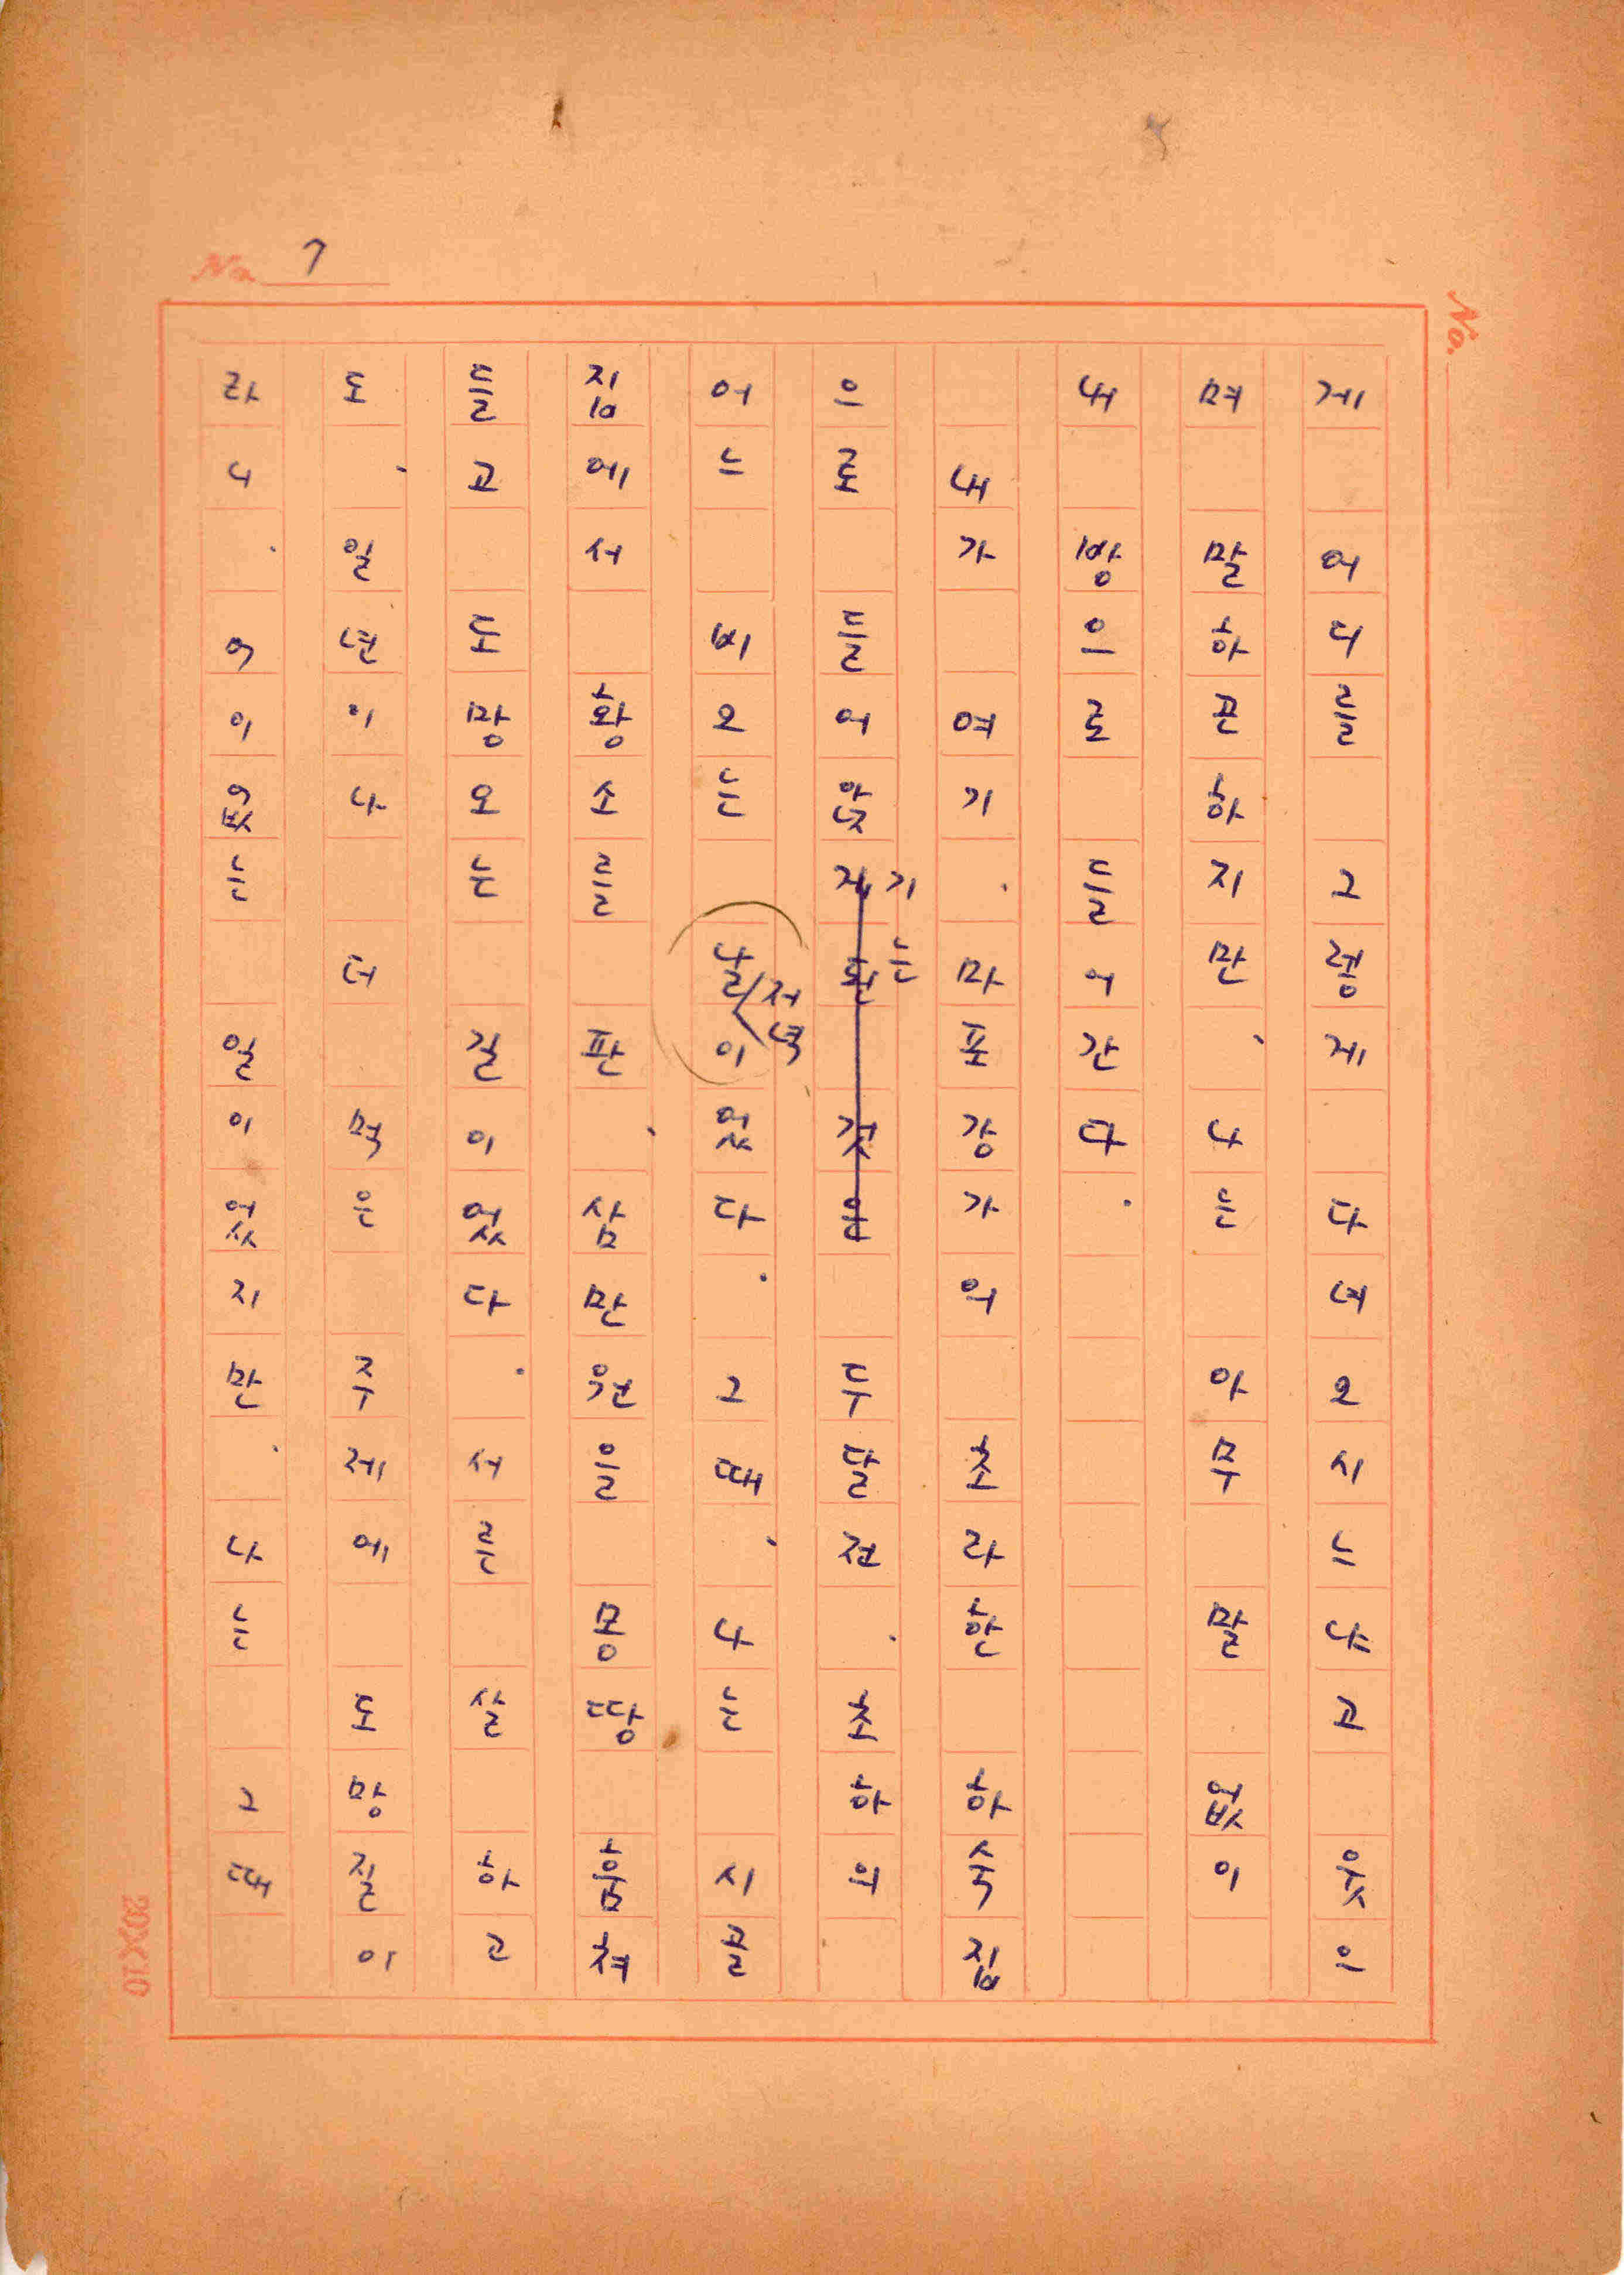 No. 7
No.
게 어디를 그렇게 다녀오시느냐고 웃으
며 말하곤하지만、나는 아무말 없이
내 방으로 들어간다.
내가 여기. 마포강가의 초라한 하숙집
으로 들어앉게 된 것은 두달전. 초하의
기는
어느 비오는 날이었다. 그때、나는 시골
저녁
집에서 황소를 판、삼만원을 몽땅 훔쳐
들고 도망오는 길이었다. 서른살 하고
도、일년이나 더 먹은 주제에 도망질이
라니. 어이없는 일이었지만、나는 그때
20X10